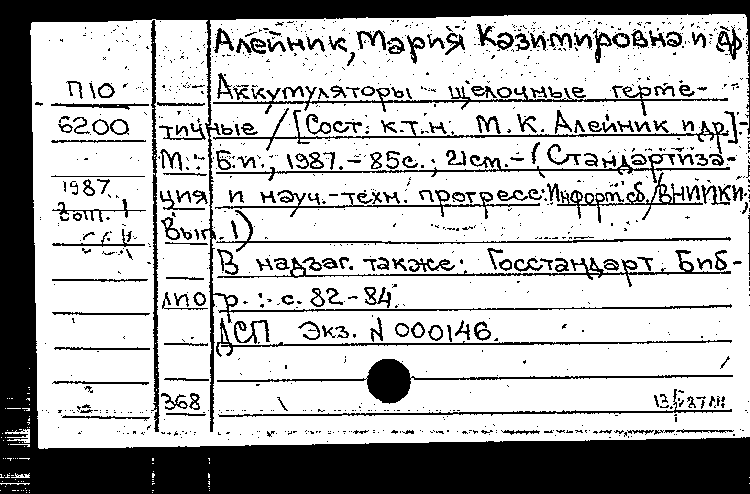 Алейник, Мария Казимировна и др
П10
Аккумуляторы щелочные герме-
6200
тичные / [Сост. к.т.н. М.К. Алейник и др.].-
М.: Б.и., 1987.- 85с.; 21см.- (Стандартиза-
1987
ция и науч.-техн. прогресс: Информ. сб. / ВНИИКИ;
вып. 1
Вып. 1)
В надзаг. также: Госстандарт. Биб-
лиогр.: с. 82-84.
ДСП Экз. N 000146.
368